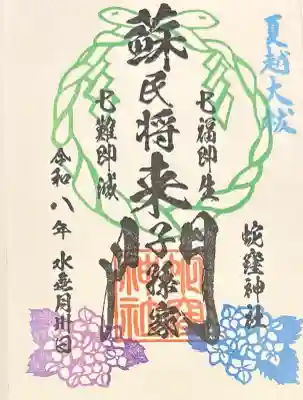 夏越大祓
蛇窪神社
七福即生
蘇民将来子孫家門
七難即滅
令和八年 水無月卅日
蛇窪
神社